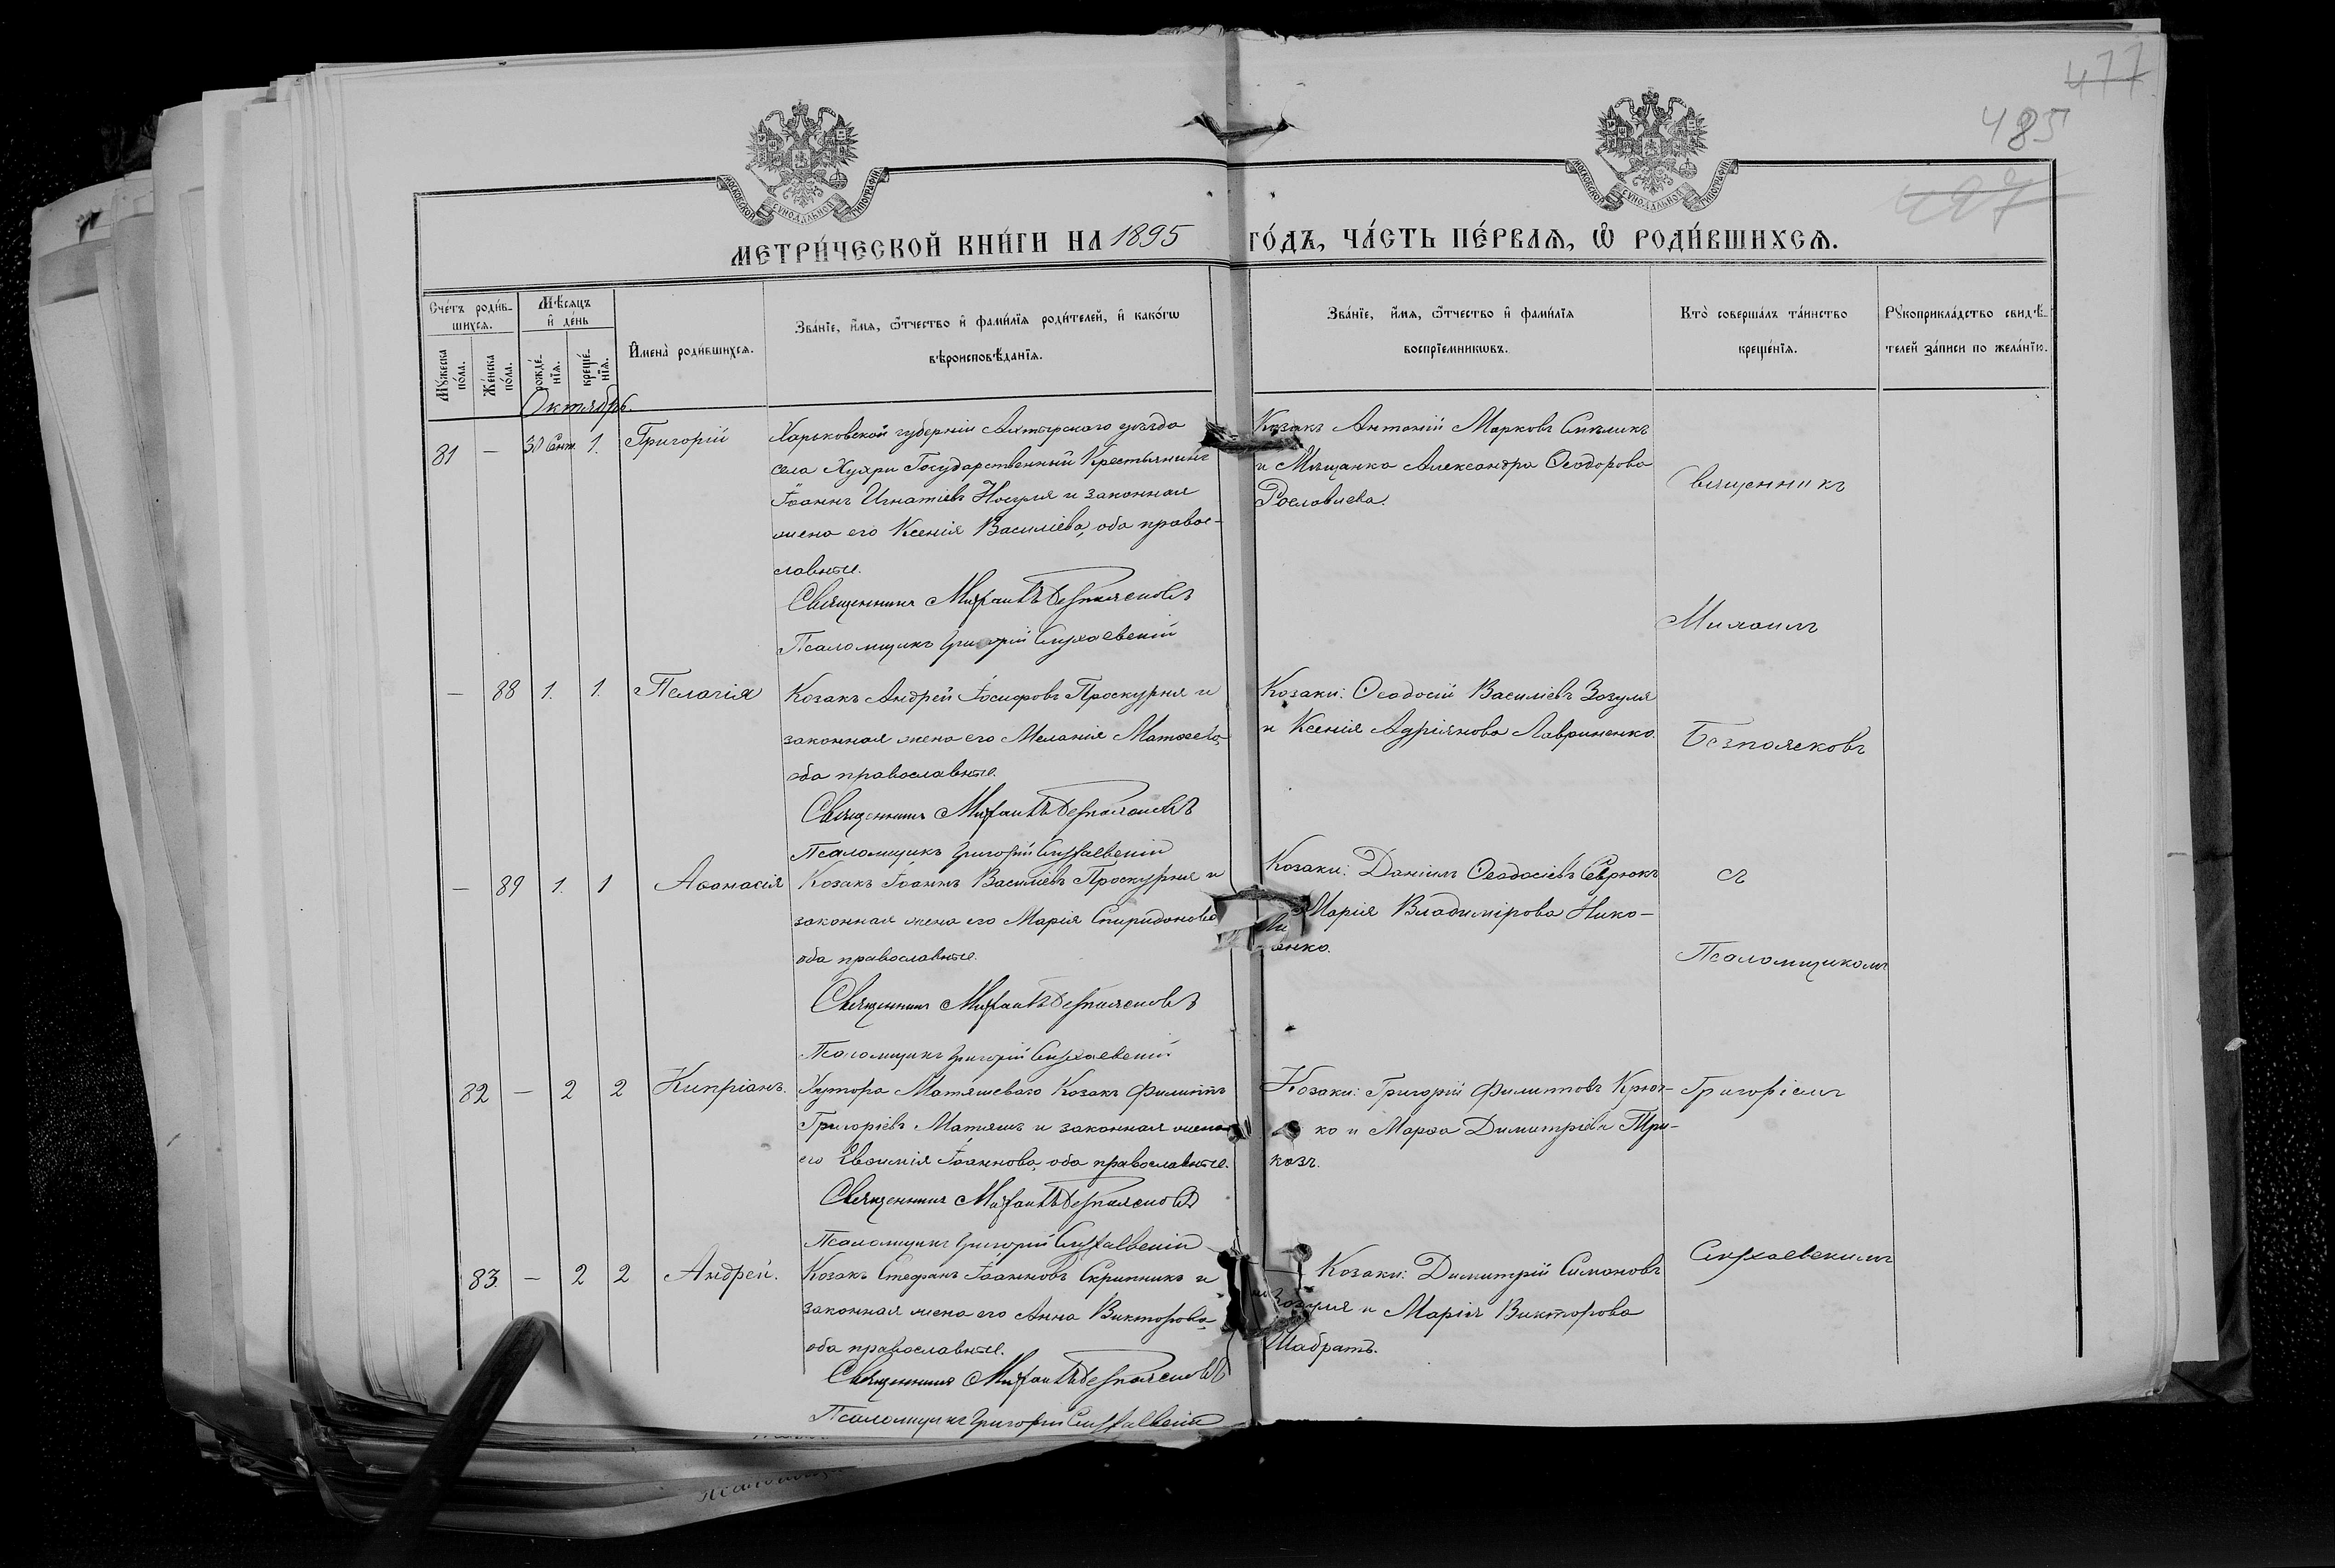 477
485
МОСКОВСКОЙ СУНОДАЛЬНОЙ ТИПОГРАФІИ
МОСКОВСКОЙ СУНОДАЛЬНОЙ ТИПОГРАФІИ
МЕТРИ́ЧЕСКОЙ КНИ́ГИ НА 1895 ГО́ДЪ, ЧА́СТЬ ПЕ́РВАѦ, Ѡ РОДИ́ВШИХСѦ.
Сче́тъ роди́в-
шихсѧ.
Мꙋ́жеска по́ла.
Же́нска по́ла.
Мѣ́сѧцъ
и҆ де́нь
рожде́-
нїѧ.
креще́-
нїѧ.
И҆мена̀ роди́вшихсѧ.
Зва́нїе, и҆́мѧ, ѻ҆́тчество и҆ фами́лїѧ роди́телей, и҆ како́гѡ
вѣроисповѣ́данїѧ.
Зва́нїе, и҆́мѧ, ѻ҆́тчество и҆ фами́лїѧ
воспрїе́мникѡвъ.
Кто̀ соверша́лъ та́инство
креще́нїѧ.
Рꙋкоприкла́дство свидѣ́-
телей за́писи по жела́нїю.
Октябрь.
81 — 30 Сент. 1. Григорій
Харьковской губерніи Ахтырскаго уѣзда
села Хухри Государственный Крестьянинъ
Іоаннъ Игнатіевъ Носуля и законная
жена его Ксенія Василіева, оба право-
славные.
Священникъ Михаилъ Безпоясковъ
Псаломщикъ Григорій
Козакъ Антоній Марковъ
и Мѣщанка Александра Ѳеодорова
Рославцева.
— 88 1. 1. Пелагія
Козакъ Андрей Іосифовъ Проскурня и
законная жена его Меланія Матѳеева,
оба православные.
Священникъ Михаилъ Безпоясковъ
Псаломщикъ Григорій
Козаки: Ѳеодосій Василіевъ Зозуля
и Ксенія Адріянова Лавриненко.
— 89 1. 1 Аѳанасія
Козакъ Іоаннъ Василіевъ Проскурня и
законная жена его Марія Спиридонова
оба православные.
Священникъ Михаилъ Безпоясковъ
Псаломщикъ Григорій
Козаки: Даніилъ Ѳеодосіевъ Сврюкъ
Марія Владимірова Нико-
енко.
82 — 2 2 Кипріанъ.
Хутора Матяшеваго Козакъ Филиппъ
Григоріевъ Матяшъ и законная жена
его Евѳимія Іоаннова, оба православные.
Священникъ Михаилъ Безпоясковъ
Псаломщикъ Григорій
Козаки: Григорій Филиповъ Крюч-
ко и Марѳа Димитріева При-
казъ.
83. — 2 2 Андрей.
Козакъ Стефанъ Іоанновъ Скрипникъ и
законная жена его Анна Викторова
оба православные.
Священникъ Михаилъ Безпоясковъ
Псаломщикъ Григорій
Козаки: Димитрій Симоновъ
Зозуля и Марія Викторова
Шабратъ.
Священникъ
Михаилъ
Безпоясковъ
съ
Псаломщикомъ
Григоріемъ